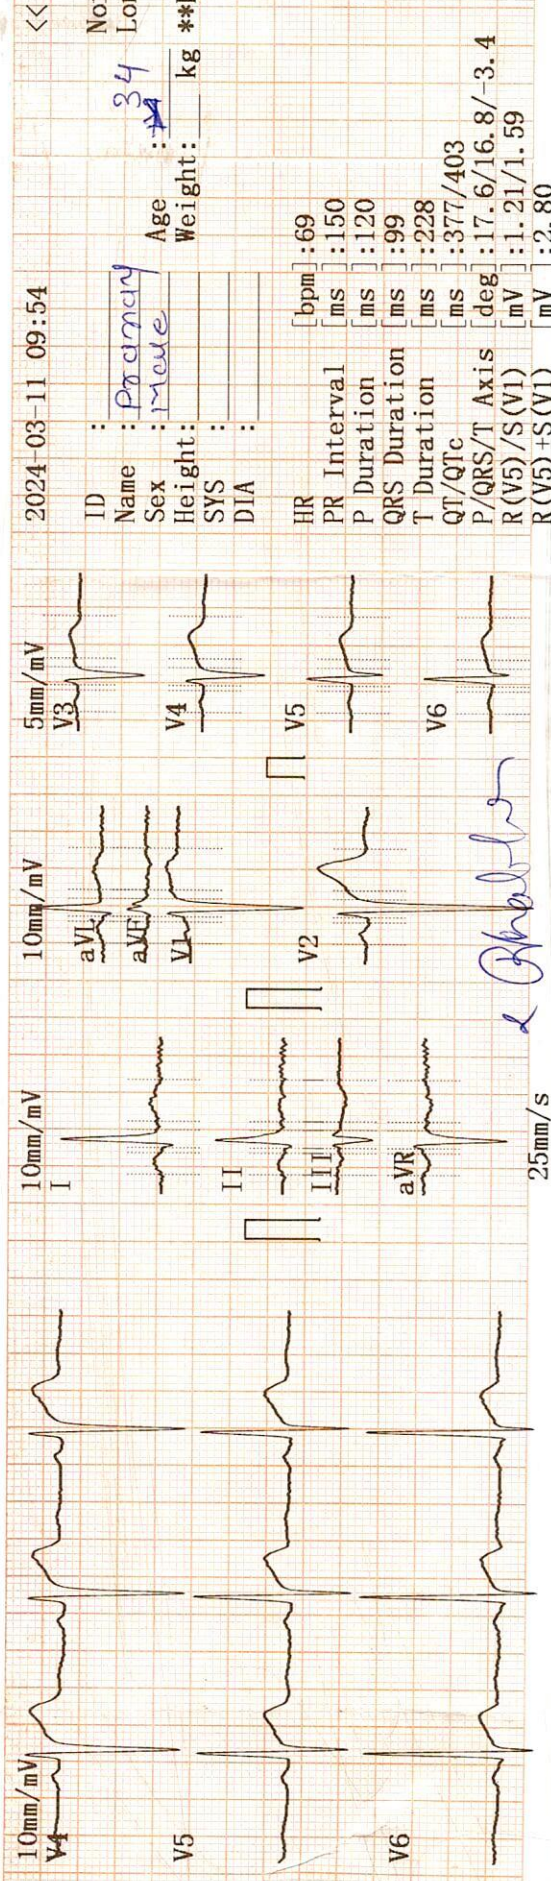 10mm/mV
V4
V5
V6
10mm/mV
I
II
III
aVR
25mm/s
10mm/mV
aVL
aVF
V1
V2
5mm/mV
V3
V4
V5
V6
2024-03-11 09:54
ID :
Name :
Sex : male
Age : 34
Height:
Weight: kg
SYS :
DIA :
HR [bpm]:69
PR Interval [ms]:150
P Duration [ms]:120
QRS Duration [ms]:99
T Duration [ms]:228
QT/QTc [ms]:377/403
P/QRS/T Axis [deg]:17.6/16.8/-3.4
R(V5)/S(V1) [mV]:1.21/1.59
R(V5)+S(V1) [mV]:2.80
<<